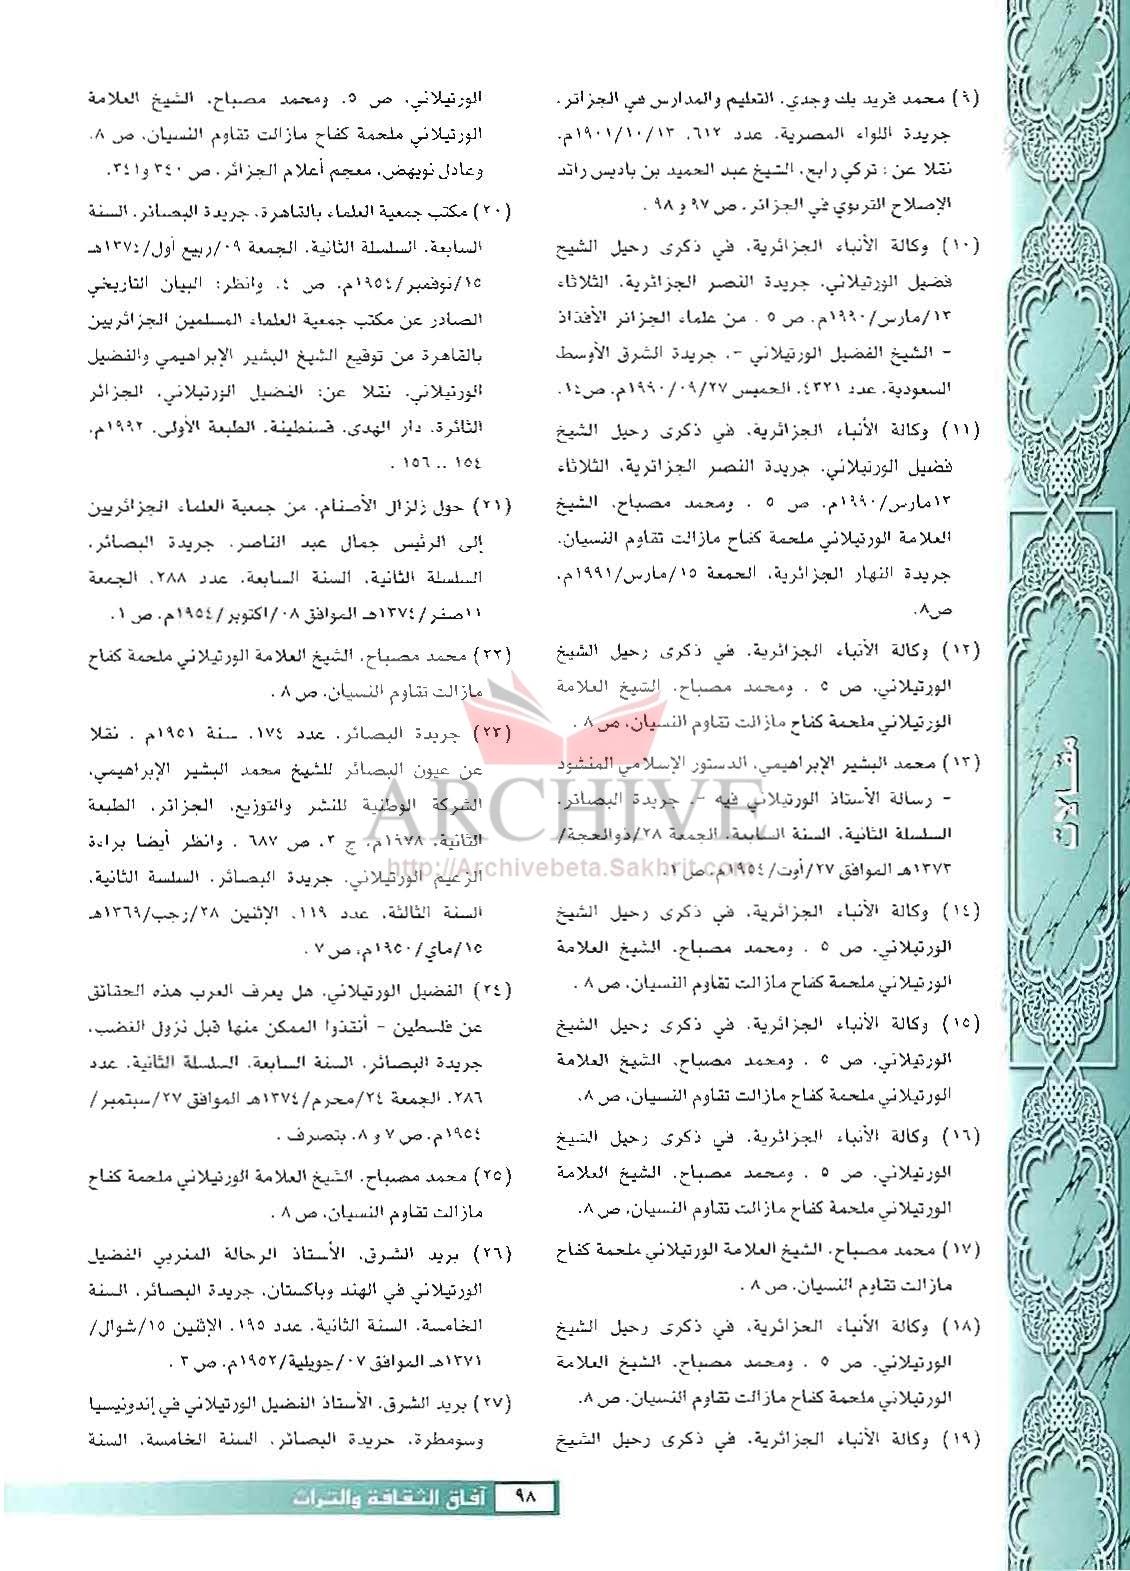 (٩) محمد فريد بك وجدي، التعليم والمدارس في الجزائر،
جريدة اللواء المصرية، عدد ٦١٢، ١٩٠١/١٠/١٣م،
نقلا عن: تركي رابح، الشيخ عبد الحميد بن باديس رائد
الإصلاح التربوي في الجزائر، ص ٩٧ و ٩٨ .
(١٠) وكالة الأنباء الجزائرية، في ذكرى رحيل الشيخ
فضيل الورتيلاني، جريدة النصر الجزائرية، الثلاثاء
١٣/مارس/١٩٩٠م، ص ٥ . من علماء الجزائر الأفذاذ
- الشيخ الفضيل الورتيلاني -، جريدة الشرق الأوسط
السعودية، عدد ٤٣٢١، الخميس ١٩٩٠/٠٩/٢٧م، ص١٤ .
(١١) وكالة الأنباء الجزائرية، في ذكرى رحيل الشيخ
فضيل الورتيلاني، جريدة النصر الجزائرية، الثلاثاء
١٣مارس/١٩٩٠م، ص ٥ . ومحمد مصباح، الشيخ
العلامة الورتيلاني ملحمة كفاح مازالت تقاوم النسيان،
جريدة النهار الجزائرية، الجمعة ١٥/مارس/١٩٩١م،
ص٨.
(١٢) وكالة الأنباء الجزائرية، في ذكرى رحيل الشيخ
الورتيلاني، ص ٥ . ومحمد مصباح، الشيخ العلامة
الورتيلاني ملحمة كفاح مازالت تقاوم النسيان، ص ٨ .
(١٣) محمد البشير الإبراهيمي، الدستور الإسلامي المنشود
- رسالة الأستاذ الورتيلاني فيه -، جريدة البصائر،
السلسلة الثانية، السنة السابعة، الجمعة ٢٨/ذوالحجة/
١٣٧٣هـ الموافق ٢٧/أوت/١٩٥٤م، ص ١.
(١٤) وكالة الأنباء الجزائرية، في ذكرى رحيل الشيخ
الورتيلاني، ص ٥ . ومحمد مصباح، الشيخ العلامة
الورتيلاني ملحمة كفاح مازالت تقاوم النسيان، ص ٨ .
(١٥) وكالة الأنباء الجزائرية، في ذكرى رحيل الشيخ
الورتيلاني، ص ٥ . ومحمد مصباح، الشيخ العلامة
الورتيلاني ملحمة كفاح مازالت تقاوم النسيان، ص ٨.
(١٦) وكالة الأنباء الجزائرية، في ذكرى رحيل الشيخ
الورتيلاني، ص ٥ . ومحمد مصباح، الشيخ العلامة
الورتيلاني ملحمة كفاح مازالت تقاوم النسيان، ص ٨.
(١٧) محمد مصباح، الشيخ العلامة الورتيلاني ملحمة كفاح
مازالت تقاوم النسيان، ص ٨ .
(١٨) وكالة الأنباء الجزائرية، في ذكرى رحيل الشيخ
الورتيلاني، ص ٥ . ومحمد مصباح، الشيخ العلامة
الورتيلاني ملحمة كفاح مازالت تقاوم النسيان، ص ٨.
(١٩) وكالة الأنباء الجزائرية، في ذكرى رحيل الشيخ
الورتيلاني، ص ٥. ومحمد مصباح، الشيخ العلامة
الورتيلاني ملحمة كفاح مازالت تقاوم النسيان، ص ٨.
وعادل نويهض، معجم أعلام الجزائر، ص ٣٤٠ و٣٤١.
(٢٠) مكتب جمعية العلماء بالقاهرة، جريدة البصائر، السنة
السابعة، السلسلة الثانية، الجمعة ٠٩/ربيع أول/١٣٧٤هـ
١٥/نوفمبر/١٩٥٤م، ص ٤. وانظر: البيان التاريخي
الصادر عن مكتب جمعية العلماء المسلمين الجزائريين
بالقاهرة من توقيع الشيخ البشير الإبراهيمي والفضيل
الورتيلاني، نقلا عن: الفضيل الورتيلاني، الجزائر
الثائرة، دار الهدى، قسنطينة، الطبعة الأولى، ١٩٩٢م،
١٥٤ .. ١٥٦ .
(٢١) حول زلزال الأصنام، من جمعية العلماء الجزائريين
إلى الرئيس جمال عبد الناصر، جريدة البصائر،
السلسلة الثانية، السنة السابعة، عدد ٢٨٨، الجمعة
١١صفر/١٣٧٤هـ الموافق ٠٨/اكتوبر/١٩٥٤م، ص ١.
(٢٢) محمد مصباح، الشيخ العلامة الورتيلاني ملحمة كفاح
مازالت تقاوم النسيان، ص ٨ .
(٢٣) جريدة البصائر، عدد ١٧٤، سنة ١٩٥١م . نقلا
عن عيون البصائر للشيخ محمد البشير الإبراهيمي،
الشركة الوطنية للنشر والتوزيع، الجزائر، الطبعة
الثانية، ١٩٧٨م، ج ٢، ص ٦٨٧ . وانظر أيضا براءة
الزعيم الورتيلاني، جريدة البصائر، السلسة الثانية،
السنة الثالثة، عدد ١١٩، الإثنين ٢٨/رجب/١٣٦٩هـ
١٥/ماي/١٩٥٠م، ص ٧ .
(٢٤) الفضيل الورتيلاني، هل يعرف العرب هذه الحقائق
عن فلسطين - أنقذوا الممكن منها قبل نزول الغضب،
جريدة البصائر، السنة السابعة، السلسلة الثانية، عدد
٢٨٦، الجمعة ٢٤/محرم/١٣٧٤هـ الموافق ٢٧/سبتمبر/
١٩٥٤م، ص ٧ و ٨، بتصرف .
(٢٥) محمد مصباح، الشيخ العلامة الورتيلاني ملحمة كفاح
مازالت تقاوم النسيان، ص ٨ .
(٢٦) بريد الشرق، الأستاذ الرحالة المغربي الفضيل
الورتيلاني في الهند وباكستان، جريدة البصائر، السنة
الخامسة، السنة الثانية، عدد ١٩٥، الإثنين ١٥/شوال/
١٣٧١هـ الموافق ٠٧/جويلية/١٩٥٢م، ص ٣ .
(٢٧) بريد الشرق، الأستاذ الفضيل الورتيلاني في إندونيسيا
وسومطرة، جريدة البصائر، السنة الخامسة، السنة
مقالات
ARCHIVE
http://Archivebeta.Sakhrit.com
٩٨ آفاق الثقافة والتراث